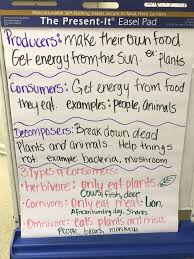 Repositionable Self-Sticking Sheets Secure to Most Flat Surfaces
The Present-It® Easel Pad
Producers: make their own food
Get energy from the sun. ex: plants
Consumers: Get energy from food
they eat. examples: people, animals
Decomposers: Break down dead
Plants and animals. Help things
rot. example bacteria, mushroom
3 Types of Consumers:
• herbivore: only eat plants
Cows, fish, deer
• Carnivore: only eat meat: Lion,
African hunting dog, Sharks
• Omnivore: eats plants and meat
People, bears, monkeys